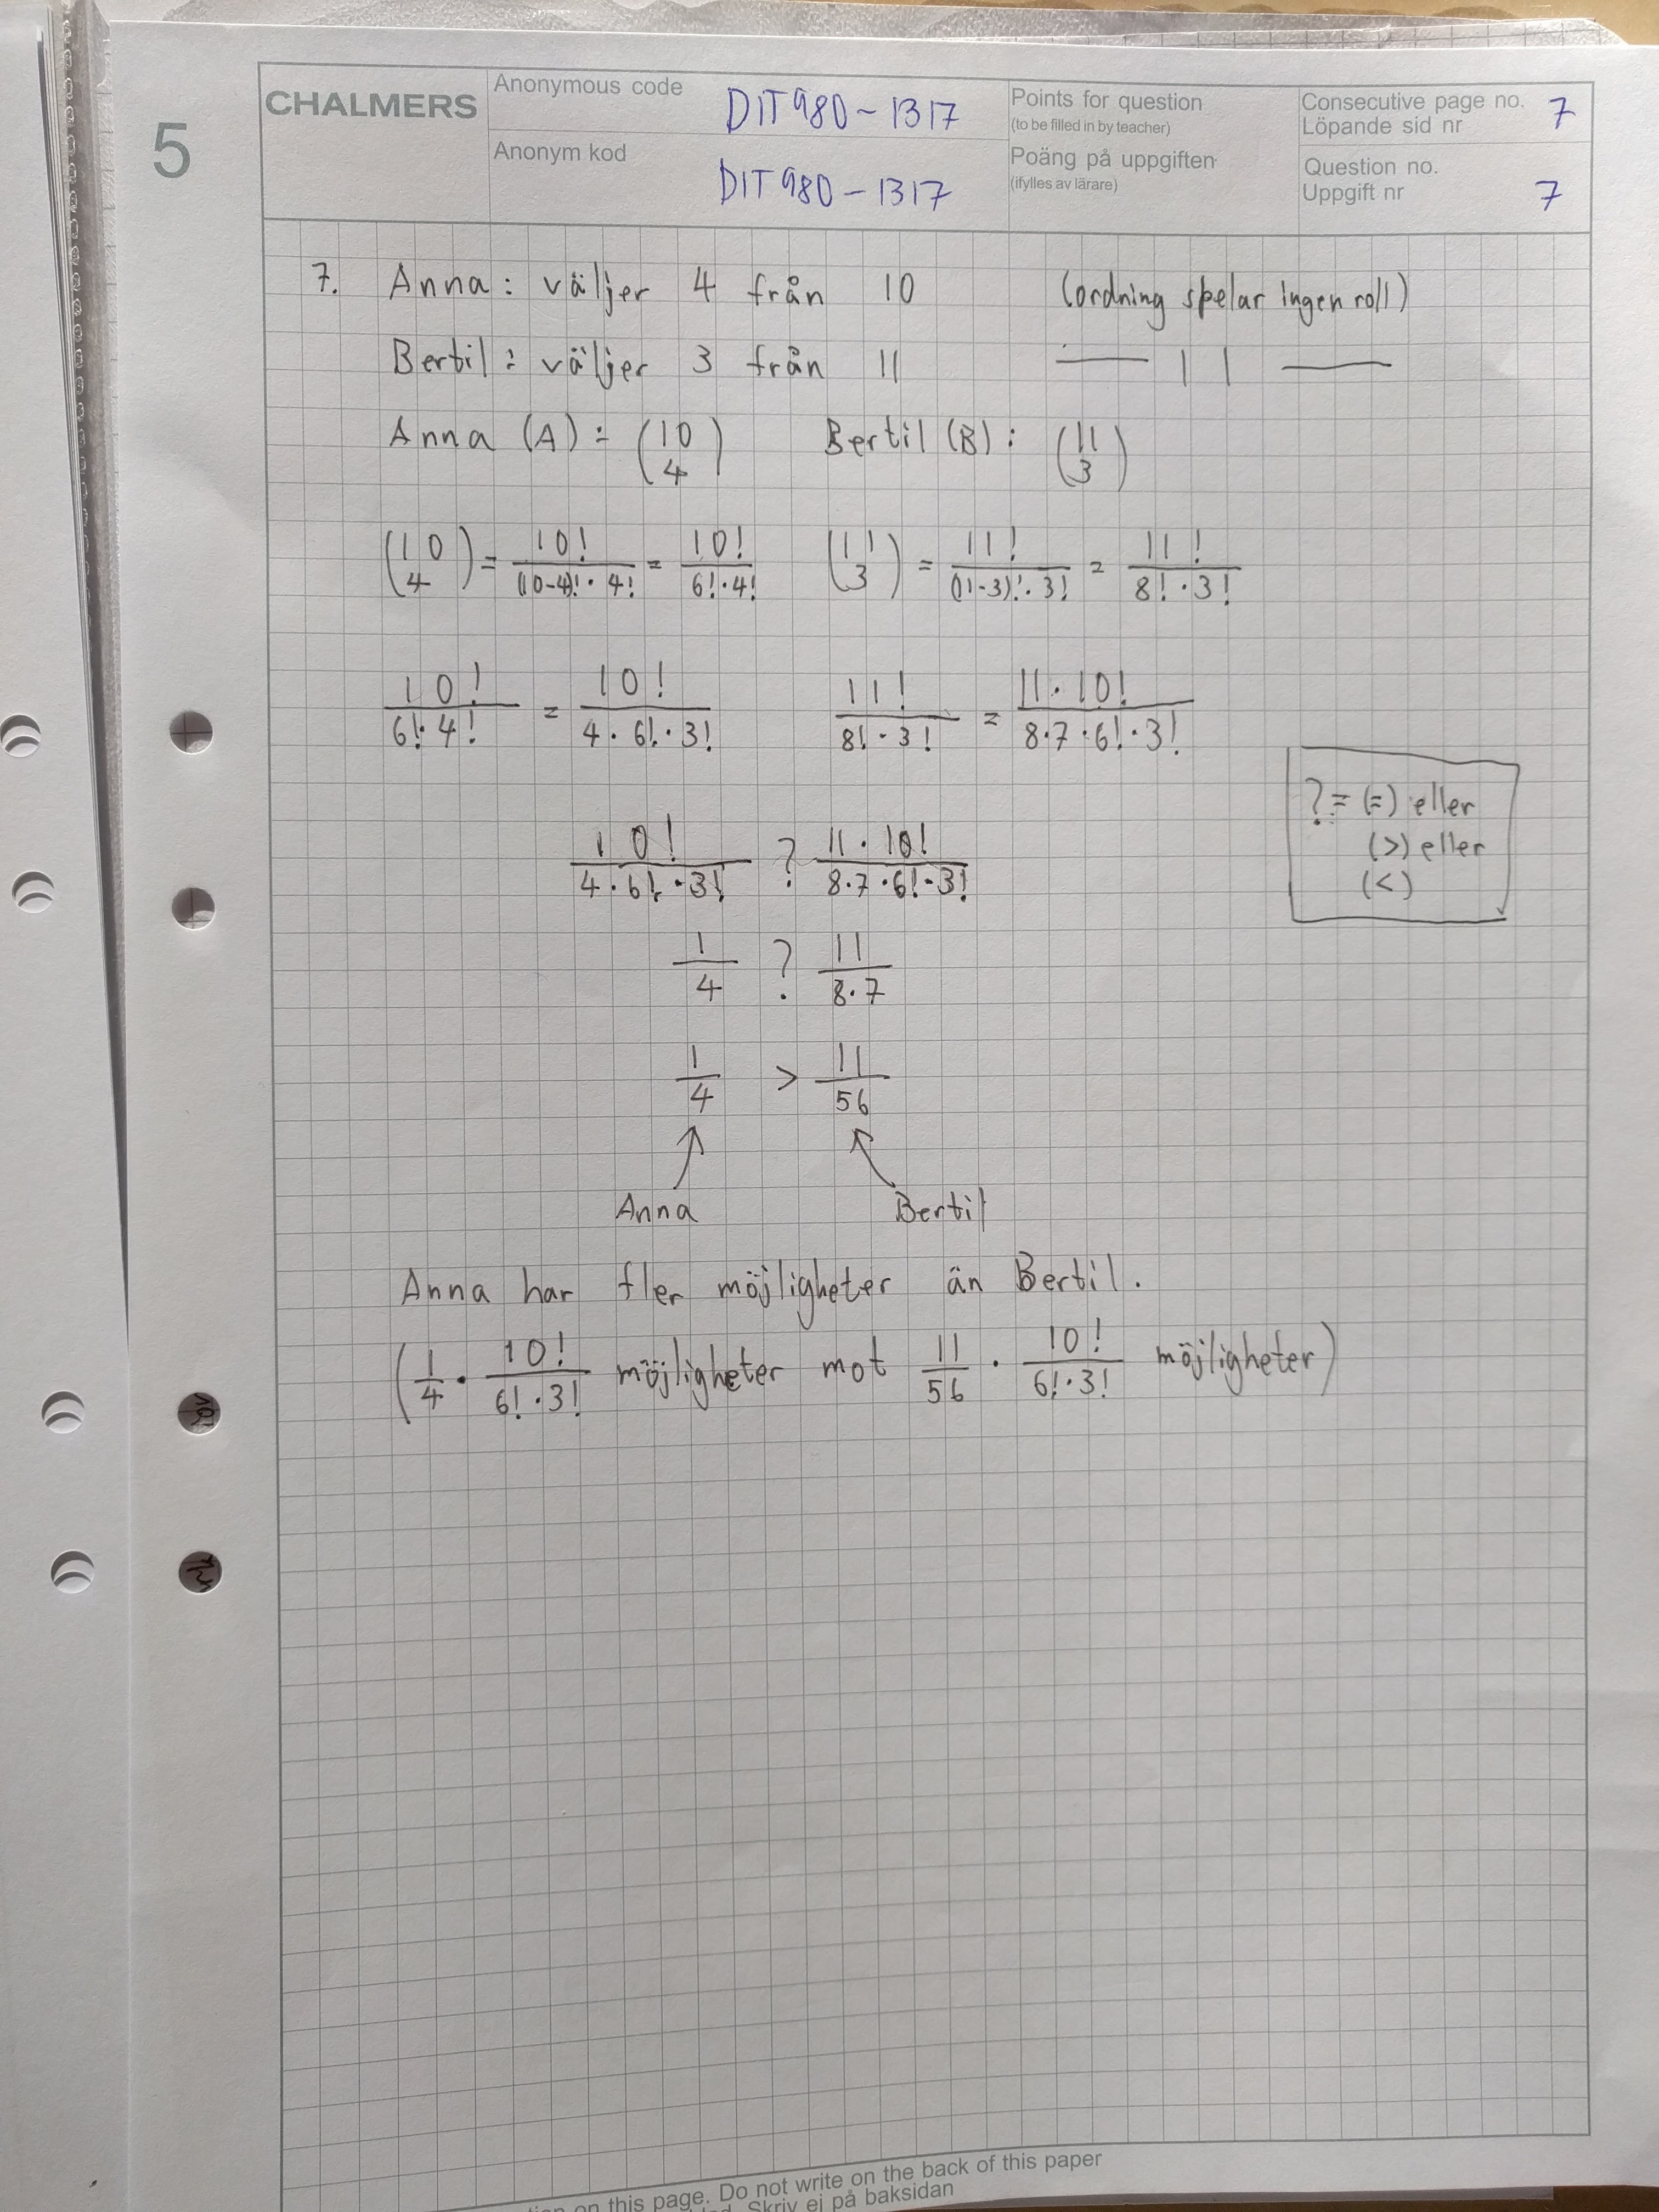 5
CHALMERS
Anonymous code DIT980-1317
Anonym kod DIT980-1317
Points for question
(to be filled in by teacher)
Poäng på uppgiften
(ifylles av lärare)
Consecutive page no. 7
Löpande sid nr
Question no.
Uppgift nr 7
7. Anna: väljer 4 från 10 (ordning spelar ingen roll)
Bertil: väljer 3 från 11 — | | —
Anna (A): (10 4) Bertil (B): (11 3)
(10 4) = 10!/((10-4)!·4!) = 10!/(6!·4!) (11 3) = 11!/((11-3)!·3!) = 11!/(8!·3!)
10!/(6!·4!) = 10!/(4·6!·3!) 11!/(8!·3!) = 11·10!/(8·7·6!·3!)
? = (=) eller
(>) eller
(<)
10!/(4·6!·3!) ? 11·10!/(8·7·6!·3!)
1/4 ? 11/(8·7)
1/4 > 11/56
Anna Bertil
Anna har fler möjligheter än Bertil.
(1/4 · 10!/(6!·3!) möjligheter mot 11/56 · 10!/(6!·3!) möjligheter)
on this page. Do not write on the back of this paper
Skriv ej på baksidan